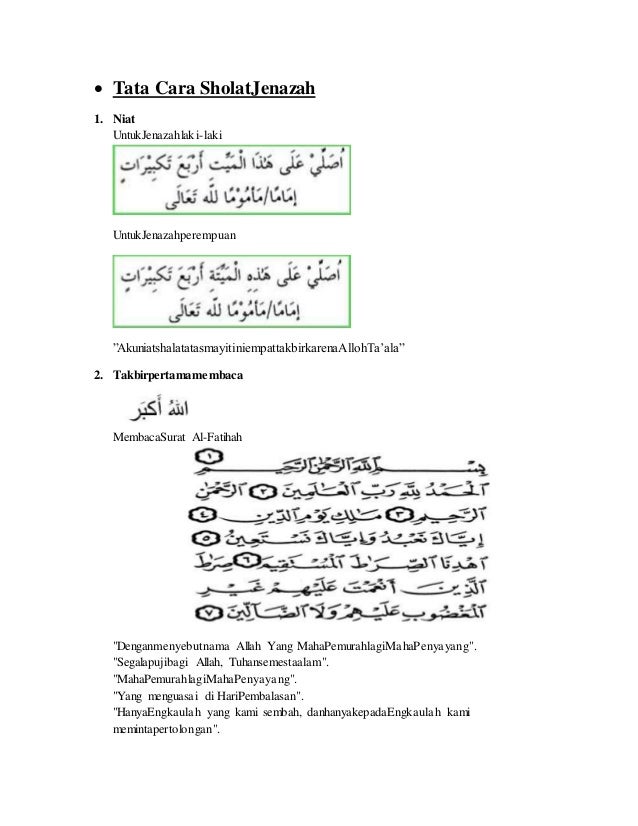 • Tata Cara SholatJenazah
1. Niat
UntukJenazahlaki-laki
اُصَلِّيْ عَلَى هٰذَا الْمَيِّتِ أَرْبَعَ تَكْبِيْرَاتٍ
إِمَامًا/مَأْمُوْمًا لِلّٰهِ تَعَالَى
UntukJenazahperempuan
اُصَلِّيْ عَلَى هٰذِهِ الْمَيِّتَةِ أَرْبَعَ تَكْبِيْرَاتٍ
إِمَامًا/مَأْمُوْمًا لِلّٰهِ تَعَالَى
”AkuniatshalatatasmayitiniempattakbirkarenaAllohTa’ala”
2. Takbirpertamamembaca
اللهُ أَكْبَر
MembacaSurat Al-Fatihah
بِسْمِ ٱللَّهِ ٱلرَّحْمَٰنِ ٱلرَّحِيمِ ١
ٱلْحَمْدُ لِلَّهِ رَبِّ ٱلْعَٰلَمِينَ ٢ ٱلرَّحْمَٰنِ
ٱلرَّحِيمِ ٣ مَٰلِكِ يَوْمِ ٱلدِّينِ ٤
إِيَّاكَ نَعْبُدُ وَإِيَّاكَ نَسْتَعِينُ ٥
ٱهْدِنَا ٱلصِّرَٰطَ ٱلْمُسْتَقِيمَ ٦ صِرَٰطَ
ٱلَّذِينَ أَنْعَمْتَ عَلَيْهِمْ غَيْرِ
ٱلْمَغْضُوبِ عَلَيْهِمْ وَلَا ٱلضَّآلِّينَ ٧
"Denganmenyebutnama Allah Yang MahaPemurahlagiMahaPenyayang".
"Segalapujibagi Allah, Tuhansemestaalam".
"MahaPemurahlagiMahaPenyayang".
"Yang menguasai di HariPembalasan".
"HanyaEngkaulah yang kami sembah, danhanyakepadaEngkaulah kami
memintapertolongan".